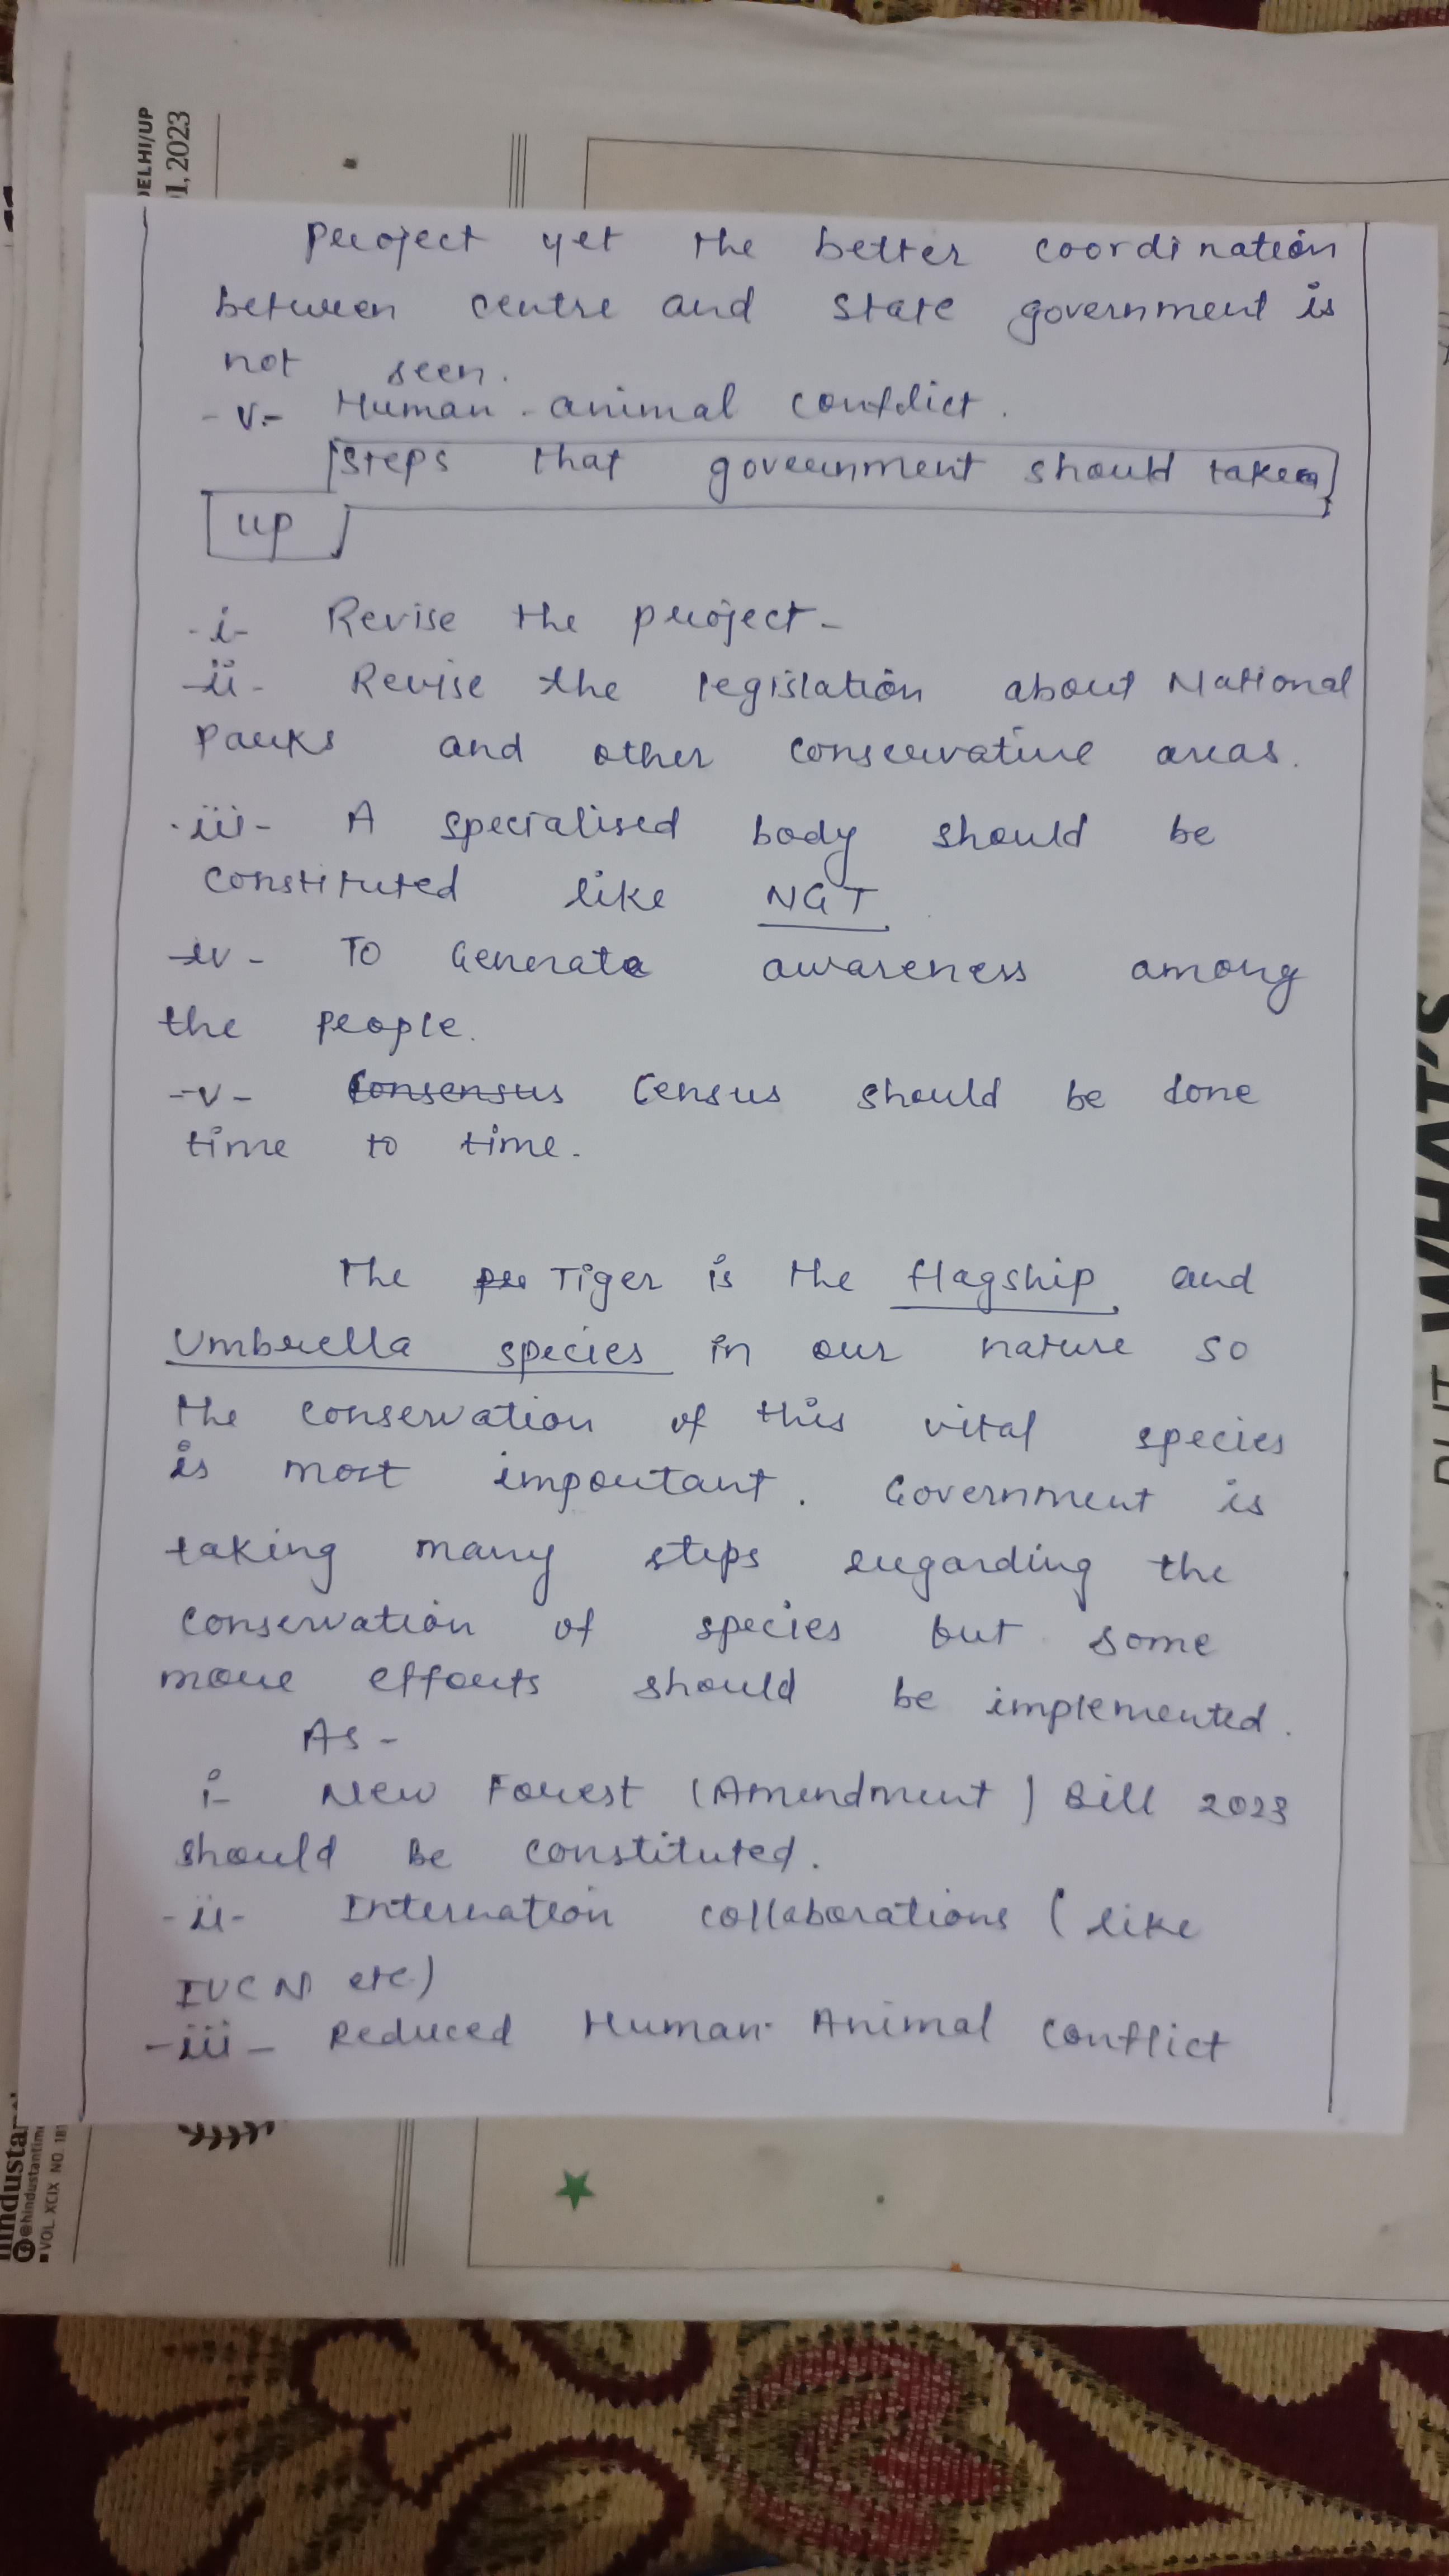 DELHI/UP
1, 2023
project yet the better coordination
between centre and state government is
not seen.
-v- Human-animal conflict.
Steps that government should taken
up
-i- Revise the project-
-ii- Revise the legislation about National
Parks and other conservative areas.
-iii- A specialised body should be
constituted like NGT
-iv- To Generate awareness among
the people.
-v- Consensus Census should be done
time to time.
The Tiger is the flagship and
Umbrella species in our nature so
the conservation of this vital species
is most important. Government is
taking many steps regarding the
conservation of species but some
more efforts should be implemented.
As -
i- New Forest (Amendment) Bill 2023
should be constituted.
-ii- Internation collaborations (like
IUCN etc)
-iii- Reduced Human-Animal conflict
WHAT'S
@hindustantim
VOL. XCIX NO. 181